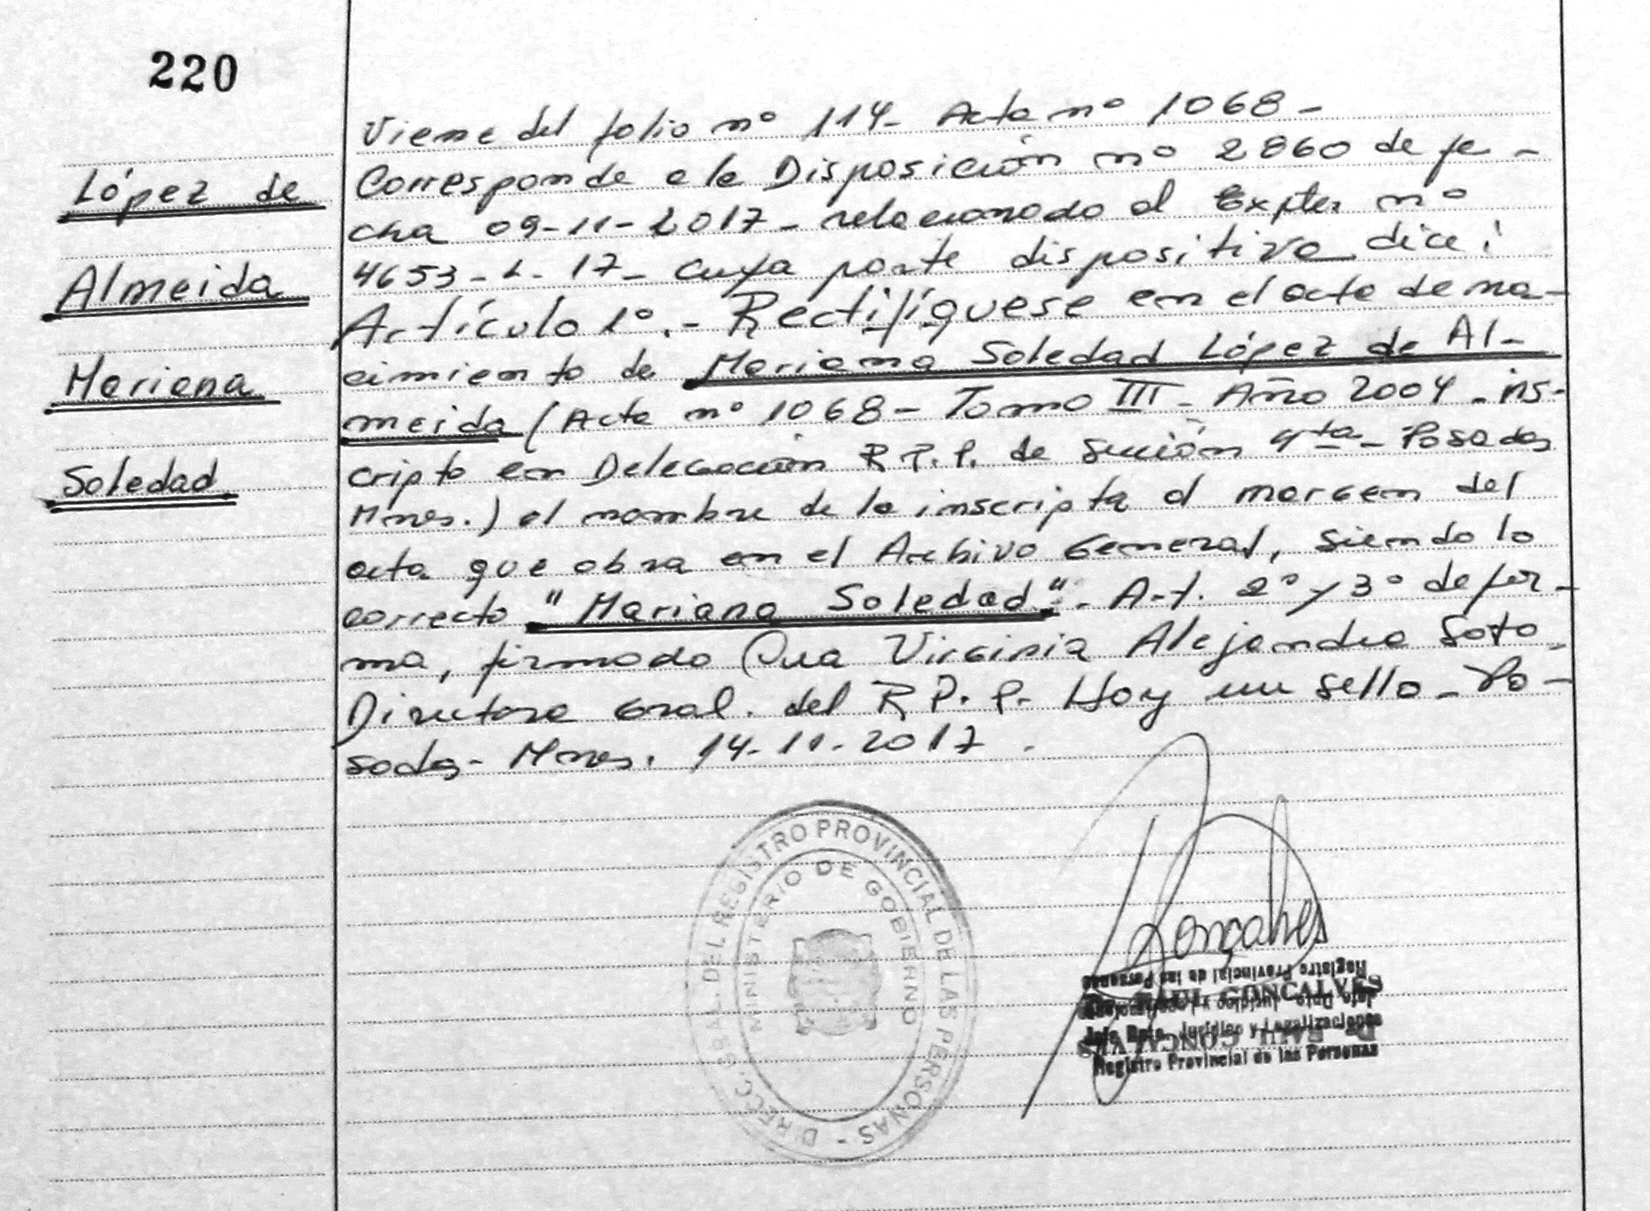 220
López de
Almeida
Mariana
Soledad
Viene del folio nº 114- Acta nº 1068-
Corresponde a la Disposición nº 2860 de fe-
cha 09-11-2017- relacionado al Expte nº
4653-L-17- cuya parte dispositiva dice:
Artículo 1º.- Rectifíquese en el acta de na-
cimiento de Mariana Soledad López de Al-
meida (Acta nº 1068- Tomo III- Año 2004- ins-
cripto en Delegación R.P.P. de Sección 4ta- Posadas
Mnes.) el nombre de la inscripta al margen del
acta que obra en el Archivo General, siendo lo
correcto "Mariana Soledad". Art. 2º y 3º de for-
ma, firmado Virginia Alejandra Soto
Directora Gral. del R.P.P. Hay un sello- Po-
sadas- Mnes. 14-11-2017.
DIRECC. GRAL. DEL REGISTRO PROVINCIAL DE LAS PERSONAS -
MINISTERIO DE GOBIERNO
Gonçalves
RAUL GONCALVES
Jefe Dpto. Jurídico y Legalizaciones
Registro Provincial de las Personas